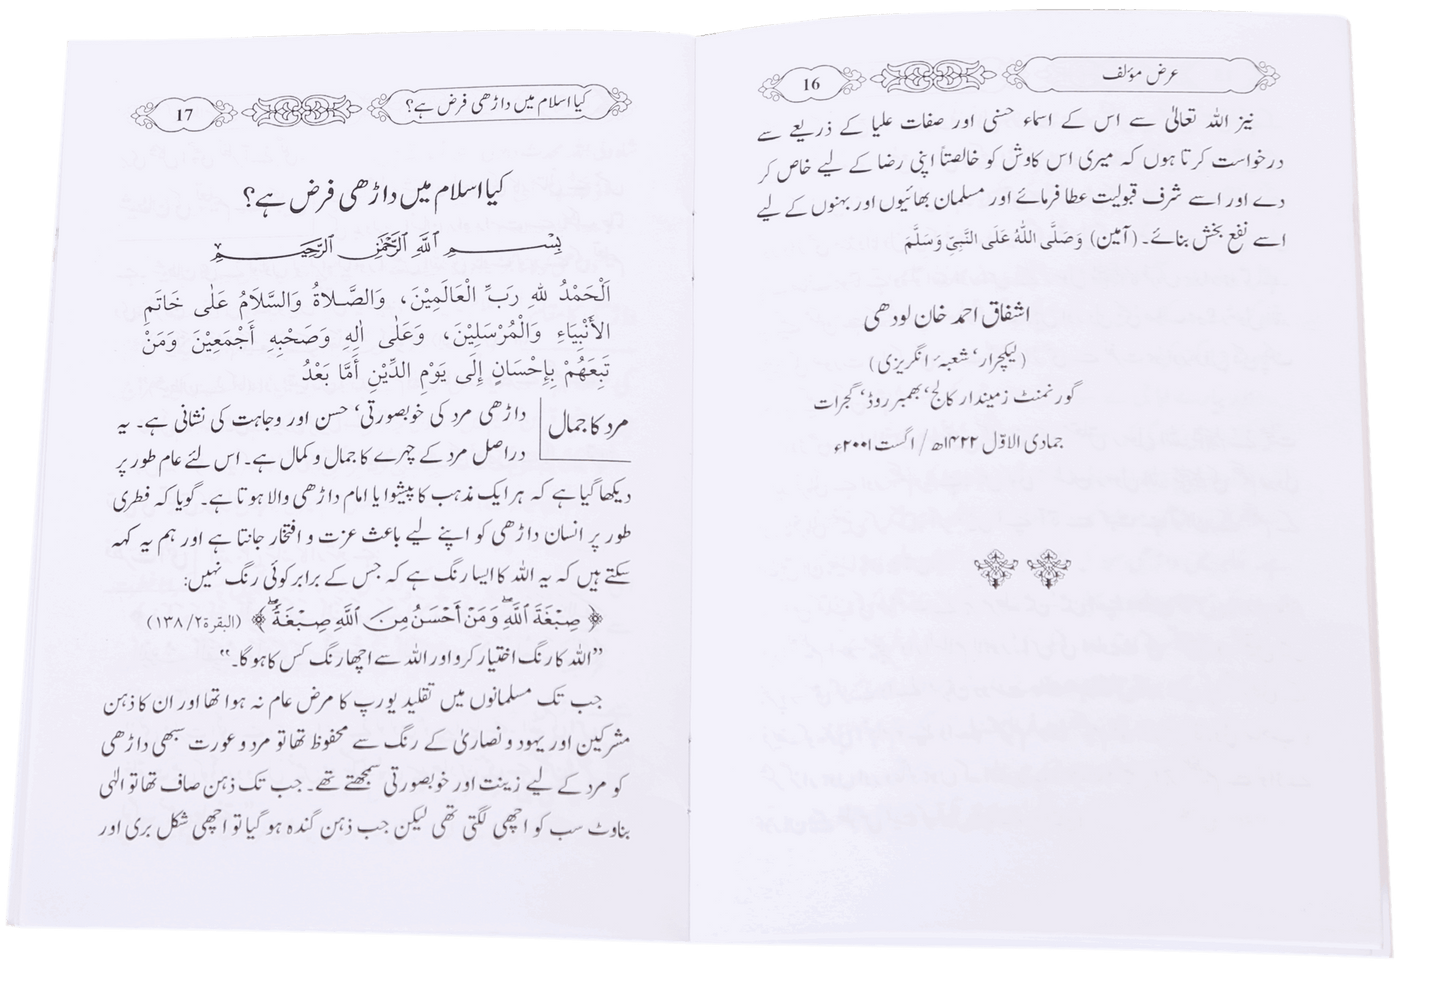 عرض مؤلف
16
نیز اللہ تعالیٰ سے اس کے اسماء حسنی اور صفات علیا کے ذریعے سے
درخواست کرتا ہوں کہ میری اس کاوش کو خالصتاً اپنی رضا کے لیے خاص کر
دے اور اسے شرف قبولیت عطا فرمائے اور مسلمان بھائیوں اور بہنوں کے لیے
اسے نفع بخش بنائے۔ (آمین) وَصَلَّى اللّٰهُ عَلَى النَّبِيِّ وَسَلَّمَ
اشفاق احمد خان لودھی
(لیکچرار، شعبۂ انگریزی)
گورنمنٹ زمیندار کالج، بھمبر روڈ، گجرات
جمادی الاوّل ۱۴۲۲ھ / اگست ۲۰۰۱ء
کیا اسلام میں داڑھی فرض ہے؟
17
کیا اسلام میں داڑھی فرض ہے؟
بِسْمِ ٱللَّهِ ٱلرَّحْمَٰنِ ٱلرَّحِيمِ
اَلْحَمْدُ للهِ رَبِّ الْعَالَمِيْنَ، وَالصَّلاةُ وَالسَّلَامُ عَلٰى خَاتَمِ
الأَنْبِيَاءِ وَالْمُرْسَلِيْنَ، وَعَلٰى اٰلِهِ وَصَحْبِهِ أَجْمَعِيْنَ وَمَنْ
تَبِعَهُمْ بِإِحْسَانٍ إِلَى يَوْمِ الدِّيْنِ أَمَّا بَعْدُ
مرد کا جمال
داڑھی مرد کی خوبصورتی، حسن اور وجاہت کی نشانی ہے۔ یہ
دراصل مرد کے چہرے کا جمال و کمال ہے۔ اس لئے عام طور پر
دیکھا گیا ہے کہ ہر ایک مذہب کا پیشوا یا امام داڑھی والا ہوتا ہے۔ گویا کہ فطری
طور پر انسان داڑھی کو اپنے لیے باعث عزت و افتخار جانتا ہے اور ہم یہ کہہ
سکتے ہیں کہ یہ اللہ کا ایسا رنگ ہے کہ جس کے برابر کوئی رنگ نہیں:
﴿ صِبْغَةَ ٱللَّهِۖ وَمَنْ أَحْسَنُ مِنَ ٱللَّهِ صِبْغَةًۖ ﴾ (البقرة ۲/ ۱۳۸)
”اللہ کا رنگ اختیار کرو اور اللہ سے اچھا رنگ کس کا ہو گا۔“
جب تک مسلمانوں میں تقلید یورپ کا مرض عام نہ ہوا تھا اور ان کا ذہن
مشرکین اور یہود و نصاریٰ کے رنگ سے محفوظ تھا تو مرد و عورت سبھی داڑھی
کو مرد کے لیے زینت اور خوبصورتی سمجھتے تھے۔ جب تک ذہن صاف تھا تو الٰہی
بناوٹ سب کو اچھی لگتی تھی لیکن جب ذہن گندہ ہو گیا تو اچھی شکل بری اور